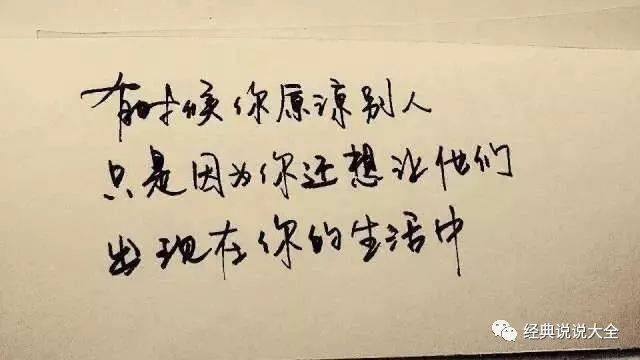 有时候你原谅别人
只是因为你还想让他们
出现在你的生活中
经典说说大全